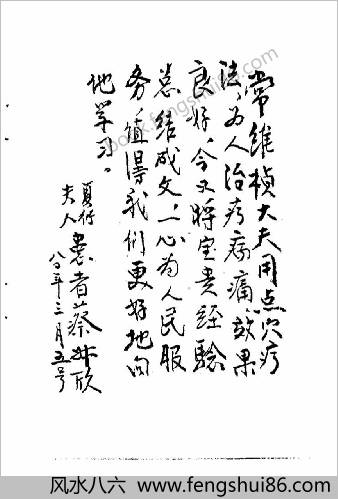 常维桢大夫用点穴疗
法，为人治疗病痛，效果
良好，今又将宝贵经验
总结成文，一心为人民服
务，值得我们更好地向
他学习。
夏行
夫人 患者蔡
八〇年三月五号
book.fengshui86.com
风水八六 www.fengshui86.com